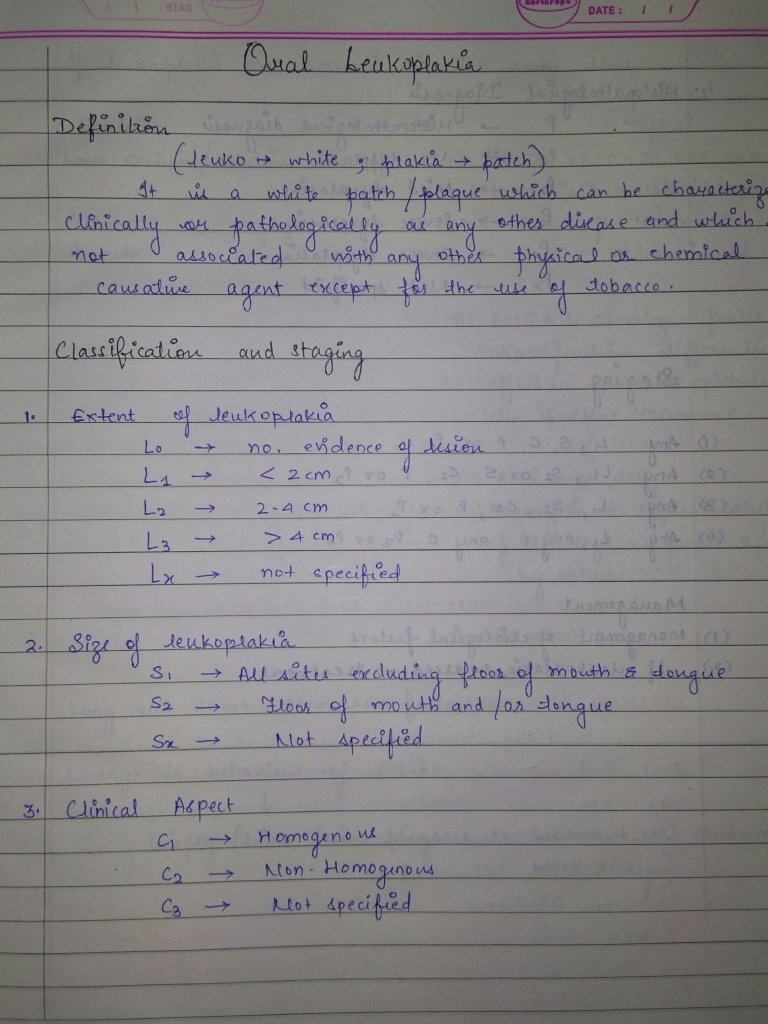 DATE: / /
Oral Leukoplakia
Definition
(leuko → white ; plakia → patch)
It is a white patch/plaque which can be characterize
clinically or pathologically as any other disease and which
not associated with any other physical or chemical
causative agent except for the use of tobacco.
Classification and staging
1. Extent of leukoplakia
L0 → no. evidence of lesion
L1 → < 2 cm
L2 → 2-4 cm
L3 → > 4 cm
Lx → not specified
2. Size of leukoplakia
S1 → All sites excluding floor of mouth & tongue
S2 → Floor of mouth and/or tongue
Sx → Not specified
3. Clinical Aspect
C1 → Homogenous
C2 → Non-Homogenous
C3 → Not specified